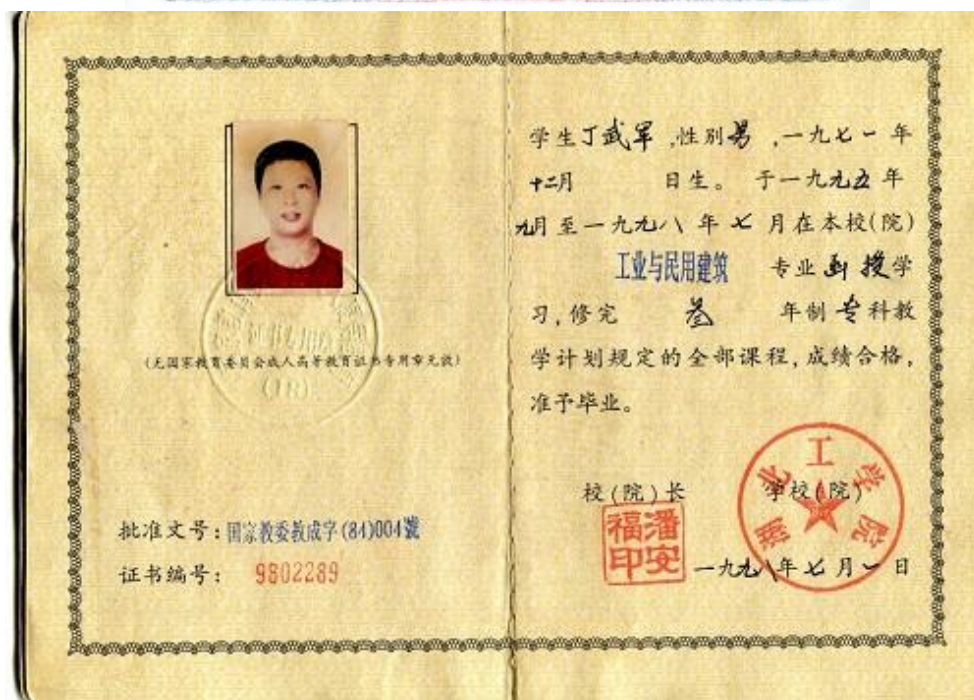 (无国家教育委员会成人高等教育证书专用章无效)
批准文号：国家教委教成字(84)004號
证书编号： 9802289
学生丁武军，性别男，一九七一年
十二月 日生。 于一九九五年
九月至一九九八年七月在本校(院)
工业与民用建筑 专业函授学
习，修完 叁 年制专科教
学计划规定的全部课程，成绩合格，
准予毕业。
校(院)长 学校(院)
潘安福印
湖北工学院
一九九八年七月一日